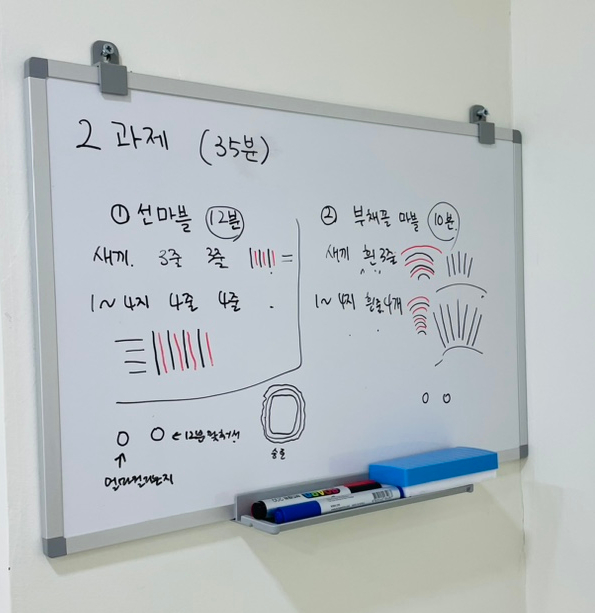 2 과제 (35분)
① 선마블 12분
새끼. 3줄 3줄
1~4지 4줄 4줄
② 부채꼴 마블 10분.
새끼 흰 3줄
1~4지 흰줄 4개
←12분 맞춰선